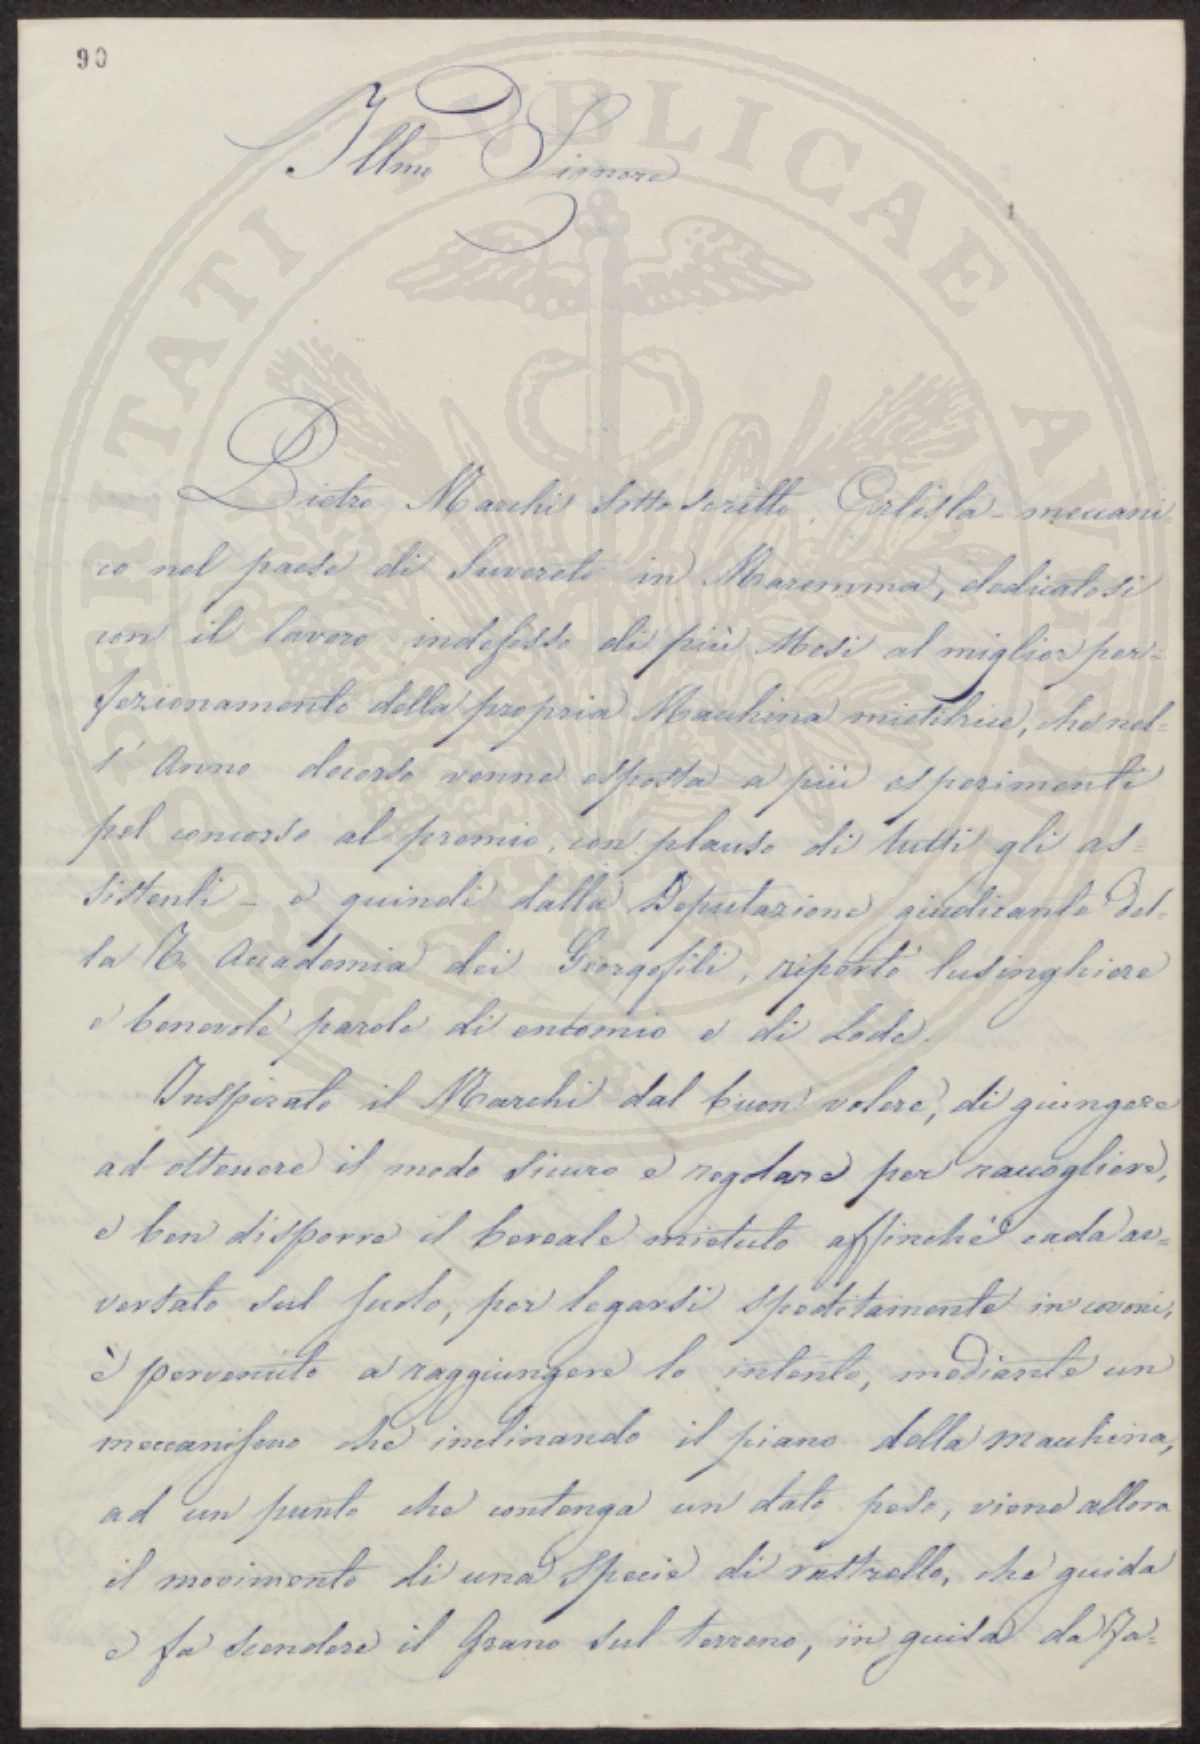 90
Illmo Signore
Pietro Marchi sottoscritto, Artista-meccani=
co nel paese di Suvereto in Maremma, dedicatosi
con il lavoro indefesso di più Mesi al miglior per=
fezionamento della propria Macchina mietitrice, che nel=
l'Anno decorso venne esposta a più esperimenti
pel concorso al premio, con plauso di tutti gli as=
sistenti - e quindi dalla Deputazione giudicante del=
la R. Accademia dei Georgofili, riportò lusinghiere
e benevole parole di encomio e di Lode.
Inspirato il Marchi dal buon volere, di giungere
ad ottenere il modo sicuro e regolare per raccogliere,
e ben disporre il Cereale mietuto affinchè cada ar=
versato sul suolo, per legarsi speditamente in covoni,
è pervenuto a raggiungere lo intento, mediante un
meccanismo che inclinando il piano della macchina,
ad un punto che contenga un dato peso, viene allora
il movimento di una specie di rastrello, che guida
e fa scendere il Grano sul terreno, in guisa da fa=
PROSPERITATI PUBLICAE AUGENDAE